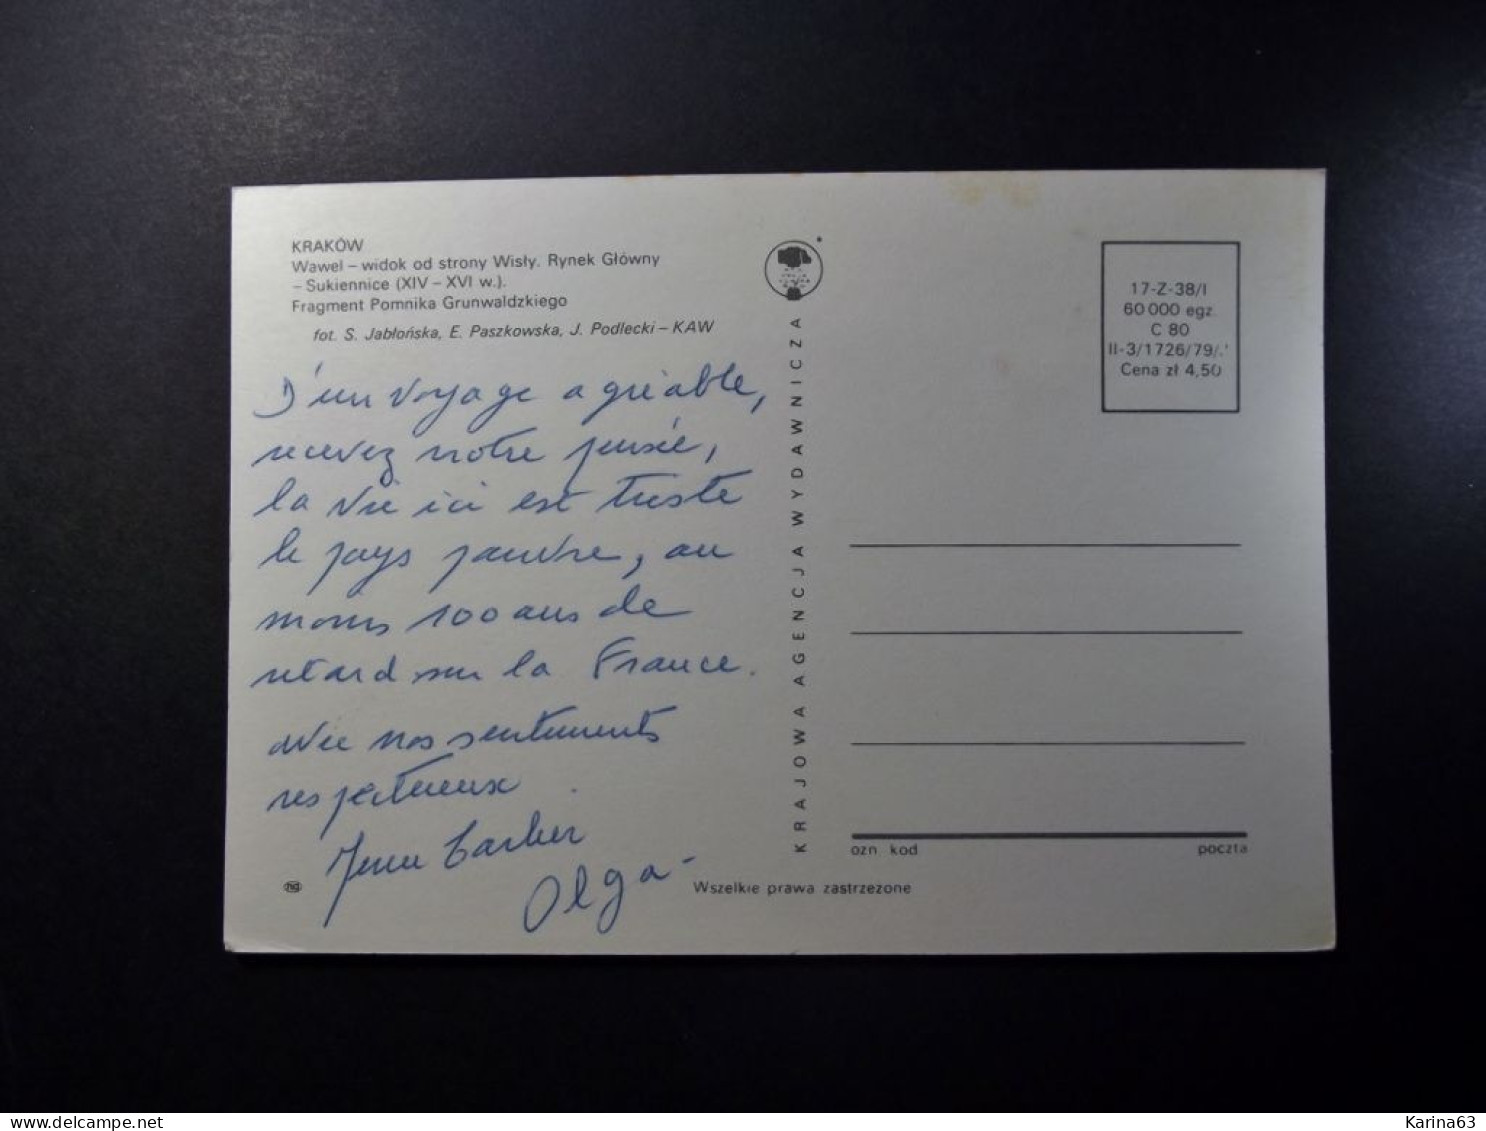 KRAKÓW
Wawel – widok od strony Wisły. Rynek Główny
– Sukiennice (XIV – XVI w.).
Fragment Pomnika Grunwaldzkiego
fot. S. Jabłońska, E. Paszkowska, J. Podlecki – KAW
D'un voyage agréable,
recevez notre pensée,
la vie ici est triste
le pays pauvre, au
moins 100 ans de
retard sur la France.
avec nos sentiments
respectueux
Olga
KRAJOWA AGENCJA WYDAWNICZA
17-Z-38/I
60 000 egz.
C 80
II-3/1726/79/.'
Cena zł 4,50
ozn. kod
poczta
Wszelkie prawa zastrzeżone
Karina63